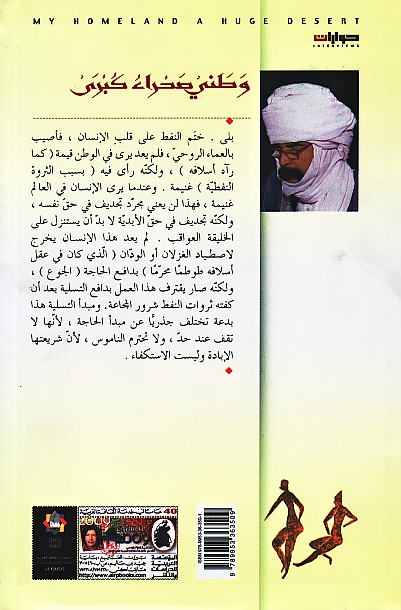 MY HOMELAND A HUGE DESERT
حوارات
INTERVIEWS
وَطَني صَحْراءُ كُبْرى
بلى . ختَم النفط على قلبِ الإنسان ، فأصيب
بالعماء الروحيّ ، فلم يعد يرى في الوطن قيمة ( كما
رآه أسلافه ) ، ولكنّه رأى فيه ( بسبب الثروة
النفطيّة ) غنيمة . وعندما يرى الإنسان في العالم
غنيمة ، فهذا لن يعني مجرّد تجديف في حقّ نفسه ،
ولكنّه تجديف في حقّ الأبديّة لا بدّ أن يستنزل على
الخليقة العواقب . لم يعد هذا الإنسان يخرج
لاصطياد الغزلان أو الودّان ( الّذي كان في عقل
أسلافه طوطمًا محرّمًا ) بدافع الحاجة ( الجوع ) ،
ولكنّه صار يقترف هذا العمل بدافع التسلية بعد أن
كفته ثروات النفط شرور المجاعة. ومبدأ التسلية هذا
بدعة تختلف جذريًّا عن مبدأ الحاجة ، لأنّها لا
تقف عند حدّ ، ولا تحترم الناموس ، لأنّ شريعتها
الإبادة وليست الاستكفاء .
40
2009
المؤسسة
العربية
للدراسات
والنشر
www.airpbooks.com
ISBN 978-9953-36-350-9
9 789953 363509